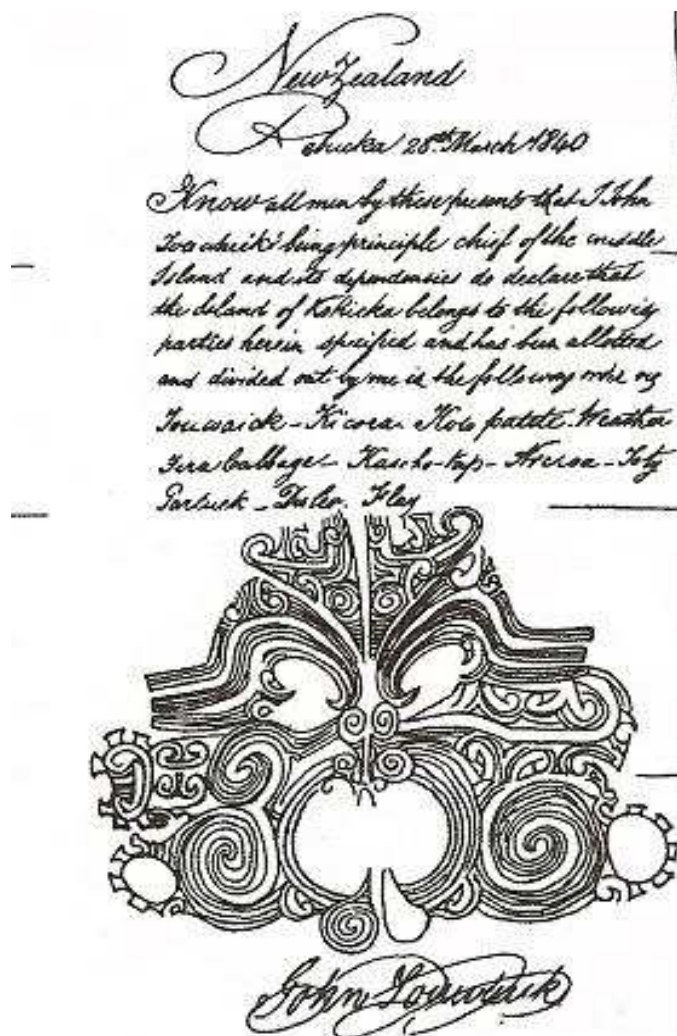 New Zealand
28th March 1840
Know all men by these presents that I John
Towwhick being principle chief of the middle
Island and its dependencies do declare that
the Island of Kohicka belongs to the following
parties herein specified and has been allotted
and divided out by me in the following
Touwaick - Kicora - patete - Weather
Cabbage - Kascho - tap -
Partuck -
John Touwaick